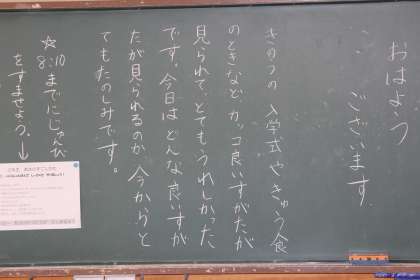 おはよう
ございます
きのうの入学式やきゅう食
のときなど、カッコ良いすがたが
見られて、とてもうれしかった
です。今日はどんな良いすが
たが見られるのか、今から、と
てもたのしみです。
☆8:10までにじゅんび
をすませよう。↓